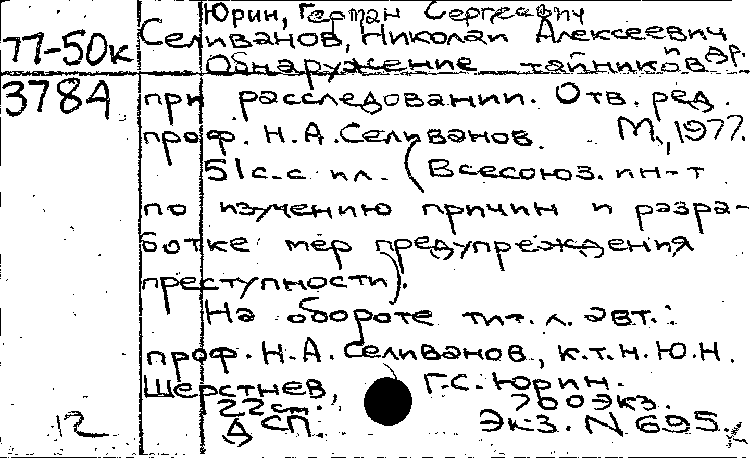 Юрин, Герман Сергеевич
77-50к Селиванов, Николай Алексеевич
и др.
Обнаружение тайников
3784 при расследовании. Отв. ред.
проф. Н.А. Селиванов. М., 1977.
51 с. с ил. (Всесоюз. ин-т
по изучению причин и разра-
ботке мер предупреждения
преступности).
На обороте тит. л. авт.:
проф. Н.А. Селиванов, к.т.н. Ю.Н.
Шерстнев, Г.С. Юрин.
22 см. 760 экз.
12 Д СП. Экз. N 695.